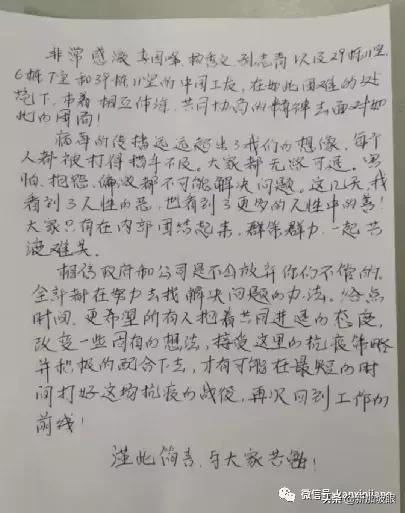 非常感激 李国峰、杨秀文、孙志茜以及29栋11室
6栋下室和39栋11室的中国工友，在如此困难的处
境下，本着相互体谅、共同协商的精神去面对如
此的困局！
病毒的传播远远超出了我们的想像，每个
人都被打得措手不及。大家都无路可退。害
怕、抱怨、偏激都不可能解决问题。这几天，我
看到了人性的恶，也看到了更多的人性中的善！
大家只有在内部团结起来，群策群力，一起共
渡难关。
相信政府和公司是不会放弃你们不管的，
全部都在努力去找解决问题的办法。给点
时间，更希望所有人抱着共同进退的态度，
改变一些固有的想法，接受这里的抗疫策略
并积极的配合下去，才有可能在最短的时
间打好这场抗疫的战役，再次回到工作的
前线！
谨此简言，与大家共勉！
微信号：kanxinjiapo
头条@新加坡眼